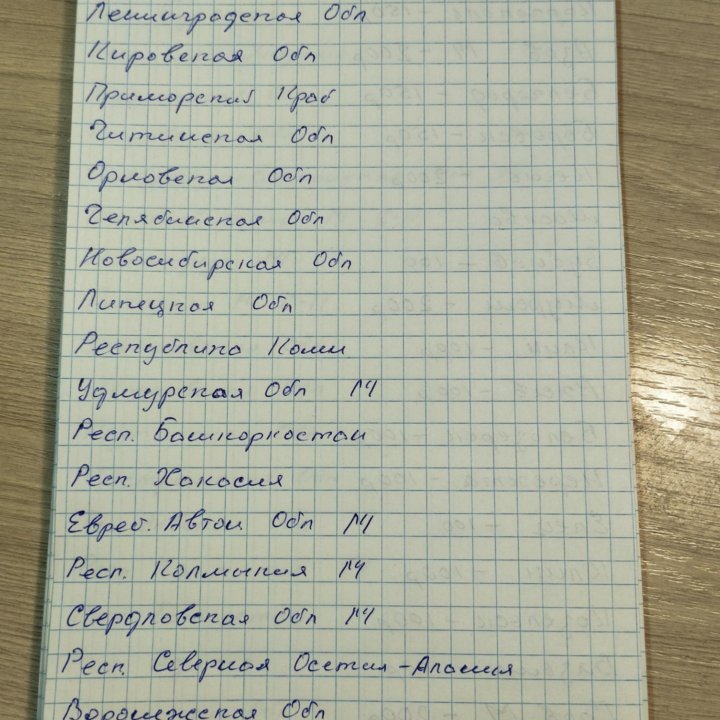 Ленинградская Обл
Кировская Обл
Приморский Край
Читинская Обл
Орловская Обл
Челябинская Обл
Новосибирская Обл
Липецкая Обл
Республика Коми
Удмурская Обл М
Респ. Башкоркостан
Респ. Хакасия
Еврей. Автон Обл М
Респ. Колмыкия М
Свердловская Обл М
Респ. Северная Осетия-Алания
Воронежская Обл